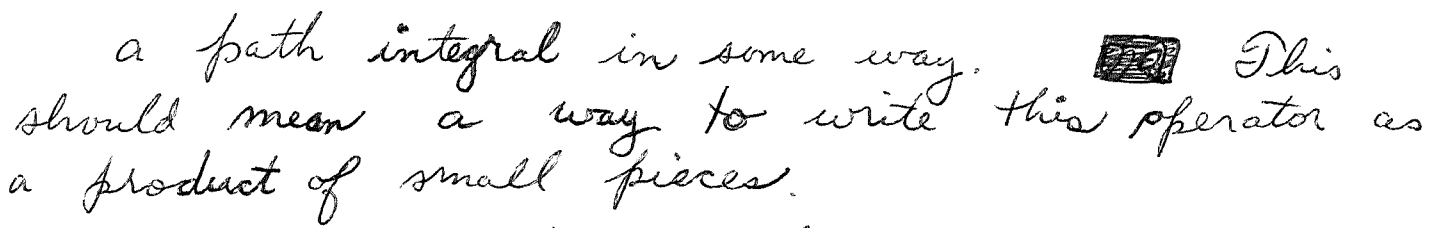 a path integral in some way. This
should mean a way to write this operator as
a product of small pieces.